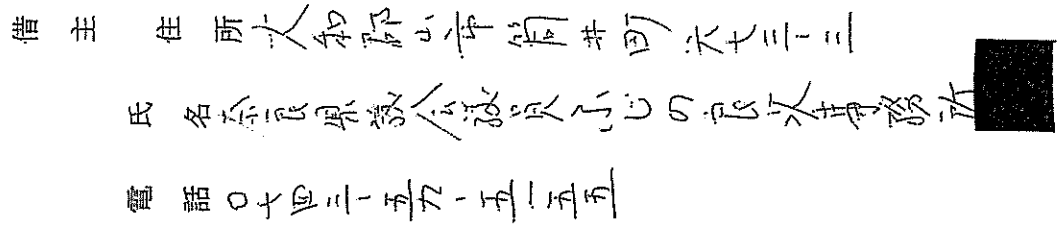 借主 住所 大和郡山市筒井町六七三-三
氏名 奈良県議会議員ふじの良次事務所
電話 〇七四三-五九-五一五五